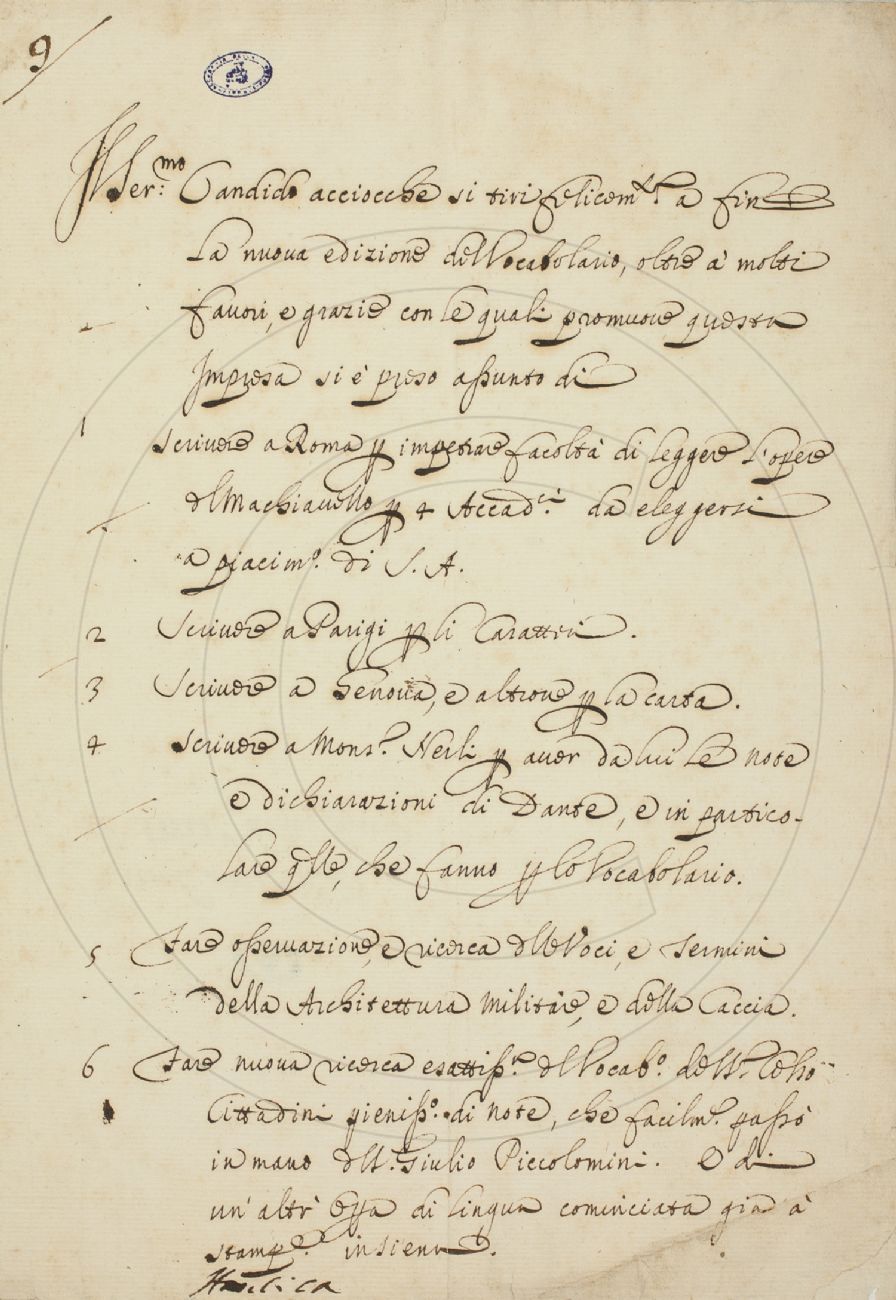 9
Il Ser.mo Candido acciocche si tiri felicem.te a fine
La nuova edizione del Vocabolario, oltre à molti
favori, e grazie con le quali promuove questa
Impresa si è preso assunto di
1 scrivere a Roma p impetrare facoltà di leggere l'opere
del Machiavello p 4 Accad.ci da eleggersi
a piacim.o di S. A.
2 Scrivere a Parigi p li Caratteri.
3 Scrivere a Genova, e altrove p la carta.
4 Scrivere a Mons.r Nerli p aver da lui le note
e dichiarazioni di Dante, e in partico-
lare qlle, che fanno p lo Vocabolario.
5 Fare osservazione, e ricerca delle Voci, e Termini
della Architettura militare, e della Caccia.
6 Fare nuova ricerca esattiss.a del Vocab.o del S.r Celso
Cittadini pieniss.o di note, che facilm.e passò
in mano del S.r Giulio Piccolomini. E di
un' altr' Opa di lingua cominciata già à
stamp.e in Siena.